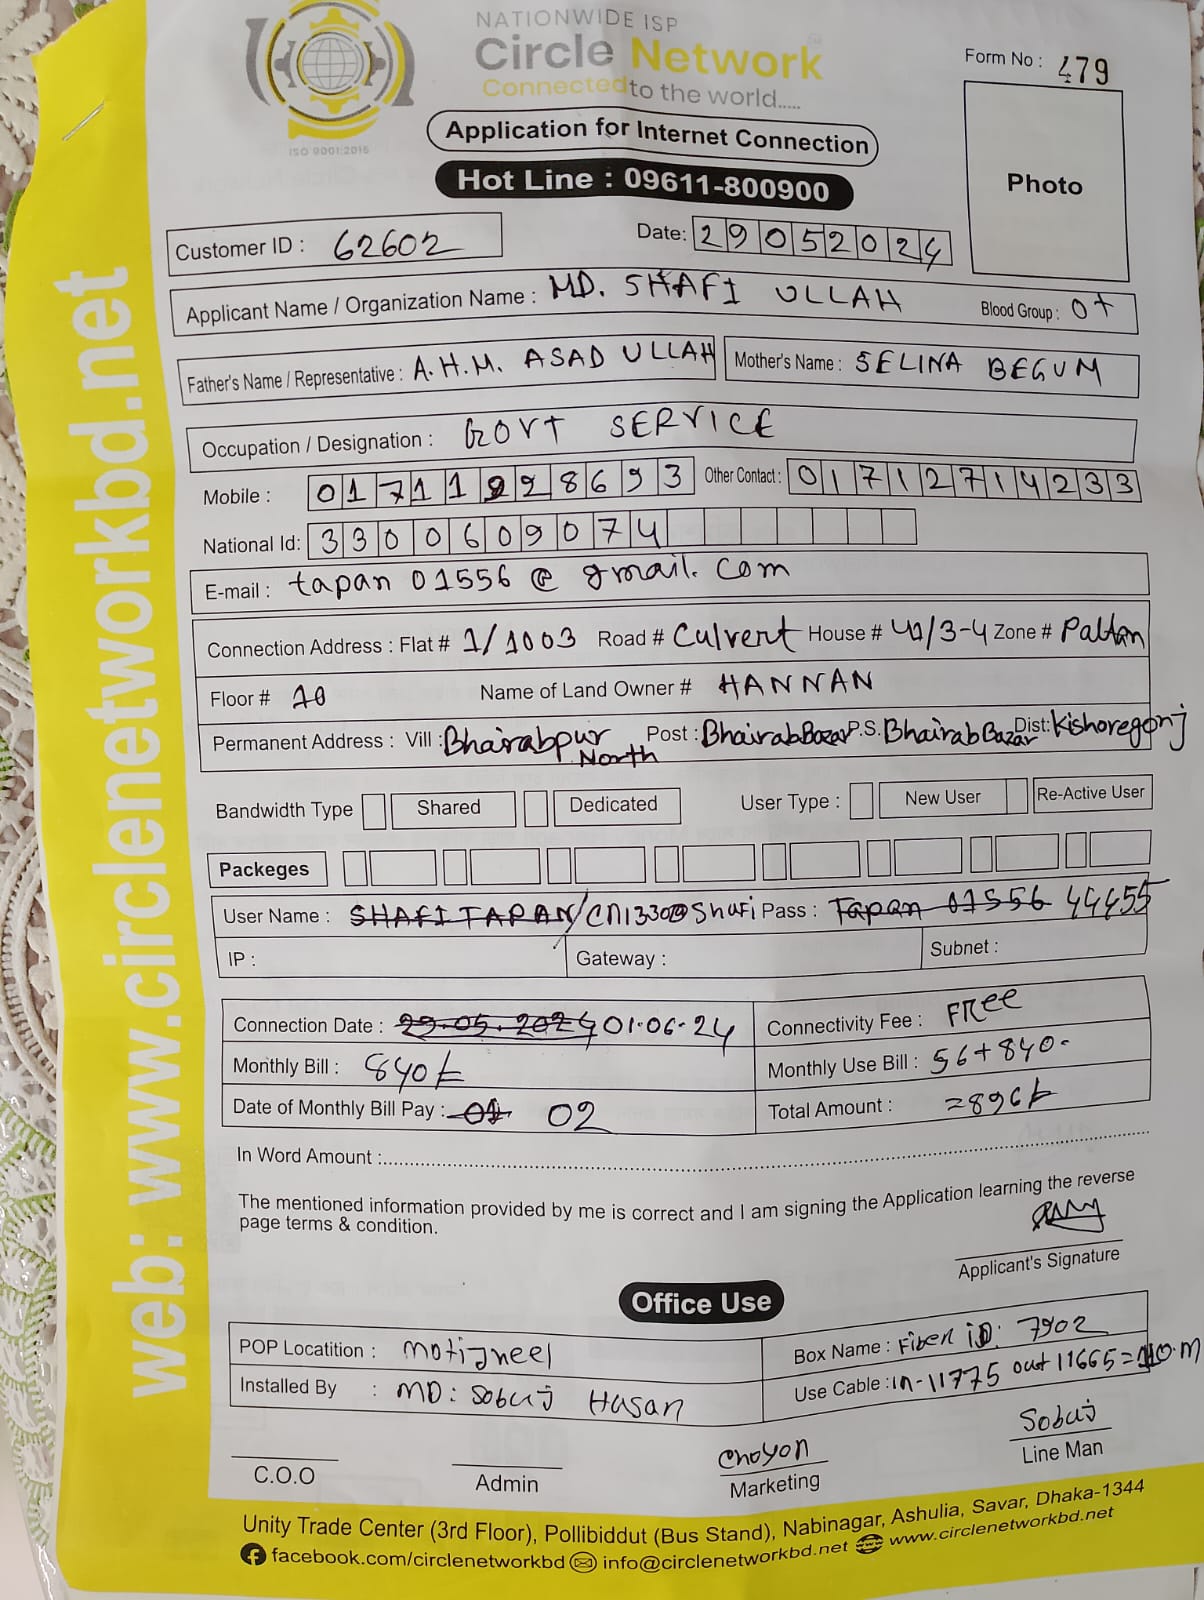 NATIONWIDE ISP
Circle Network
Connected to the world.....
ISO 9001:2015
Form No : 479
Application for Internet Connection
Hot Line : 09611-800900
Photo
Customer ID : 62602
Date: 29052024
Applicant Name / Organization Name : MD. SHAFI ULLAH Blood Group : O+
Father's Name / Representative : A.H.M. ASAD ULLAH Mother's Name : SELINA BEGUM
Occupation / Designation : GOVT SERVICE
Mobile : 01711998693 Other Contact : 01712714233
National Id: 3300609074
E-mail : tapan 01556 @ gmail. com
Connection Address : Flat # 1/1003 Road # Culvert House # 42/3-4 Zone # Paltan
Floor # 10 Name of Land Owner # HANNAN
Permanent Address : Vill : Bhairabpur North Post : Bhairab Bazar P.S. Bhairab Bazar Dist: Kishoregonj
Bandwidth Type Shared Dedicated User Type : New User Re-Active User
Packeges
User Name : SHAFI TAPAN/cn1330@Shafi Pass : Tapan 01556 44455
IP : Gateway : Subnet :
Connection Date : 29.05.2024 01.06.24 Connectivity Fee : FRee
Monthly Bill : 840/- Monthly Use Bill : 56+840-
Date of Monthly Bill Pay : 01 02 Total Amount : =896/-
In Word Amount :
The mentioned information provided by me is correct and I am signing the Application learning the reverse
page terms & condition.
Applicant's Signature
Office Use
POP Locatition : motijheel Box Name : Fiber iD: 7902
Installed By : MD: Sobuj Hasan Use Cable : in-11775 out 11665=110.m
Choyon Sobuj
C.O.O Admin Marketing Line Man
Unity Trade Center (3rd Floor), Pollibiddut (Bus Stand), Nabinagar, Ashulia, Savar, Dhaka-1344
facebook.com/circlenetworkbd info@circlenetworkbd.net www.circlenetworkbd.net
web: www.circlenetworkbd.net